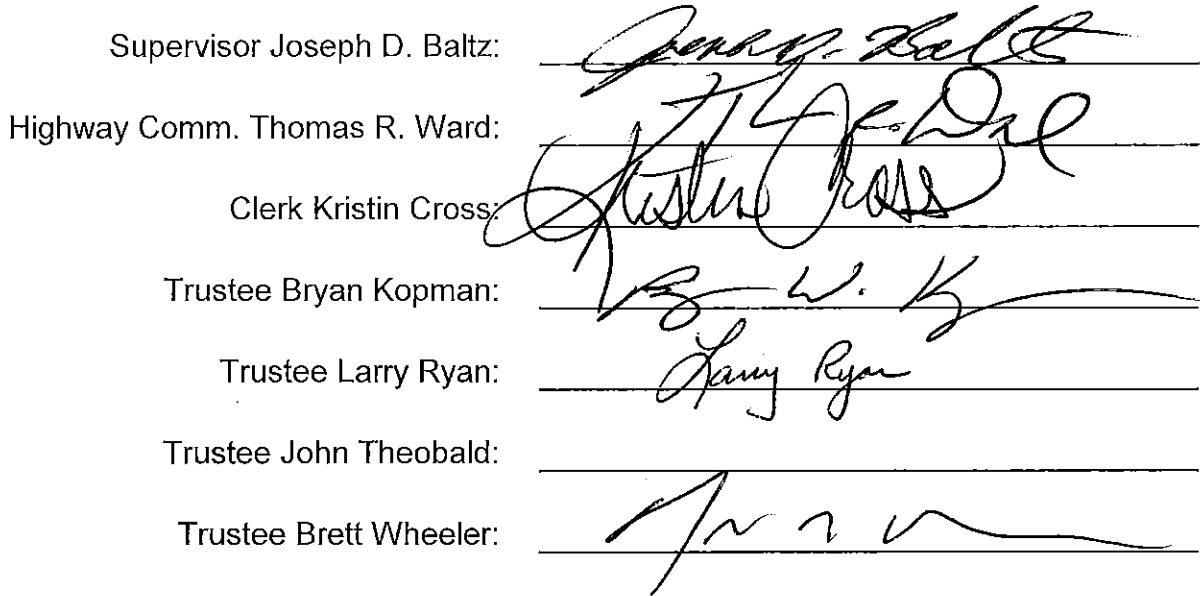 Supervisor Joseph D. Baltz: Joseph D. Baltz
Highway Comm. Thomas R. Ward:
Clerk Kristin Cross: Kristin Cross
Trustee Bryan Kopman: B W. K
Trustee Larry Ryan: Larry Ryan
Trustee John Theobald:
Trustee Brett Wheeler: